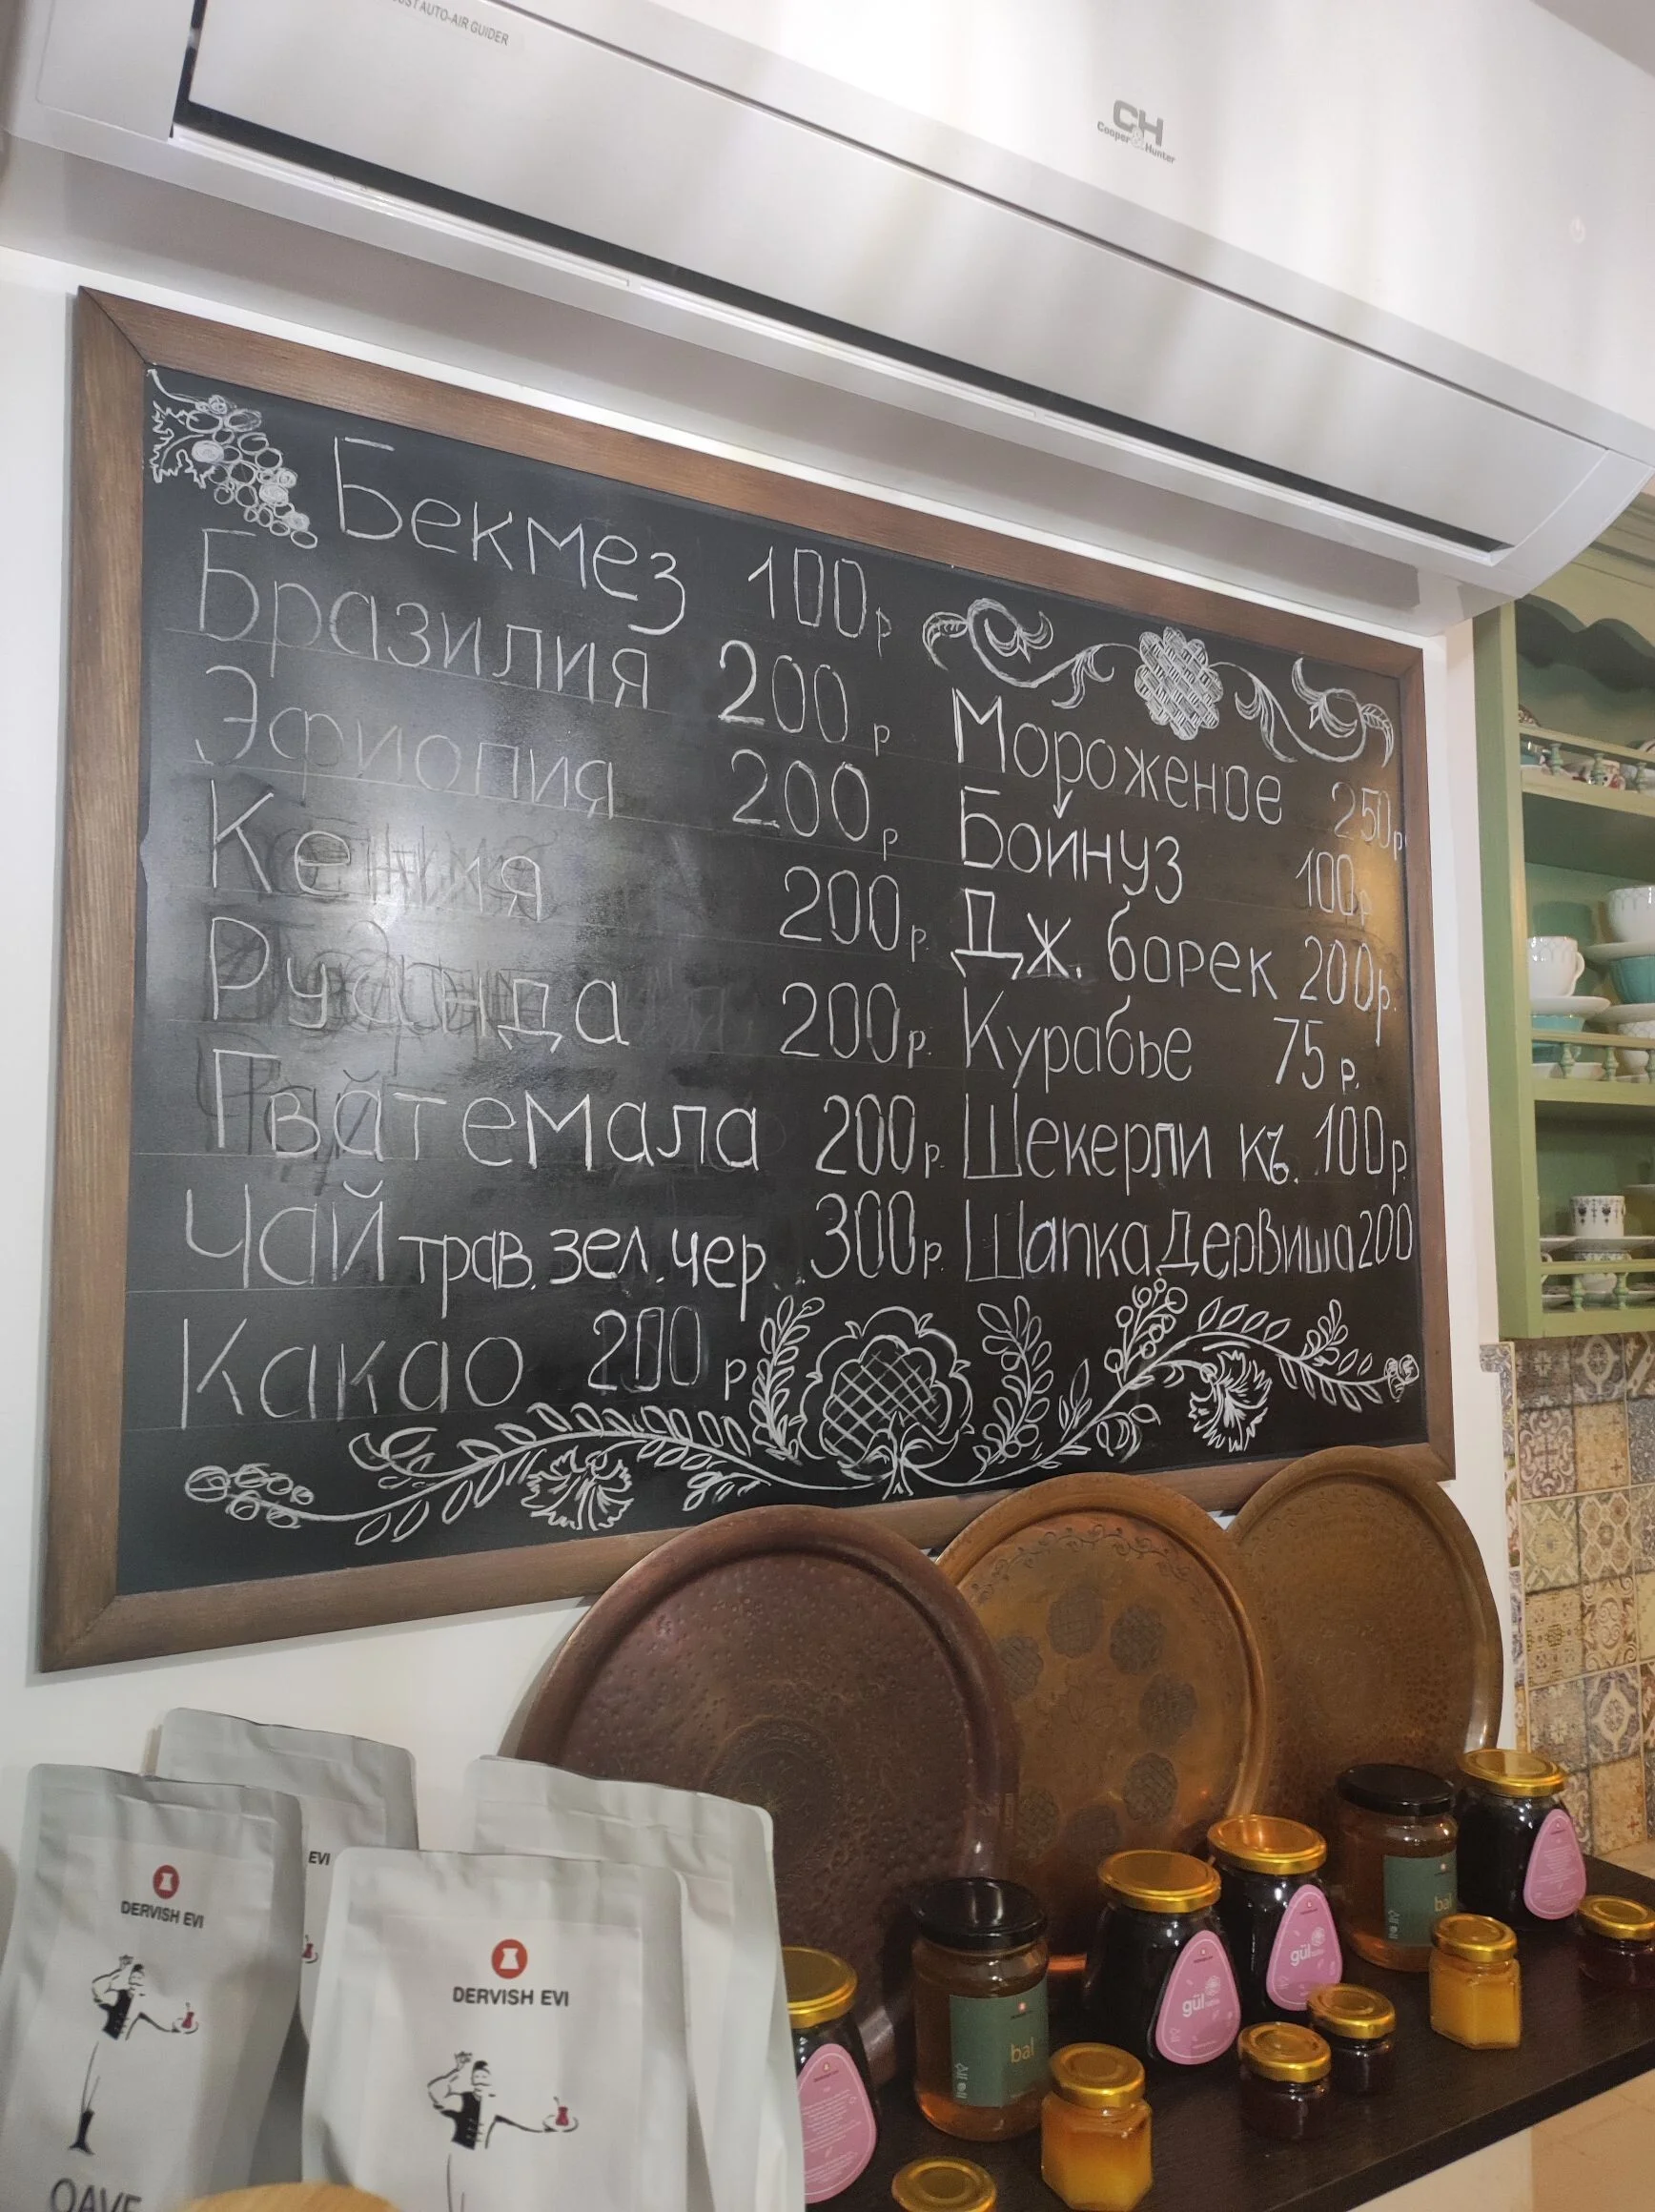 AUTO-AIR GUIDER
CH
Cooper & Hunter
Бекмез 100р
Бразилия 200р
Эфиопия 200р
Кения 200р.
Руанда 200р.
Гватемала 200р.
Чай трав. зел. чер. 300р.
Какао 200 р
Мороженое 250р
Бойнуз 100р
Дж. борек 200р.
Курабье 75 р.
Шекерли къ. 100р
Шапка Дервиша 200
EVI
DERVISH EVI
DERVISH EVI
QAVE
bal
gül
gül
bal